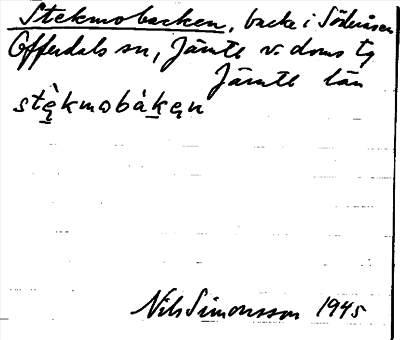 Stekmobacken, backe i Söderåsen
Offerdals sn, Jämtl v. doms tg
Jämtl län
stę̀kmobàkęn
Nils Simonsson 1945